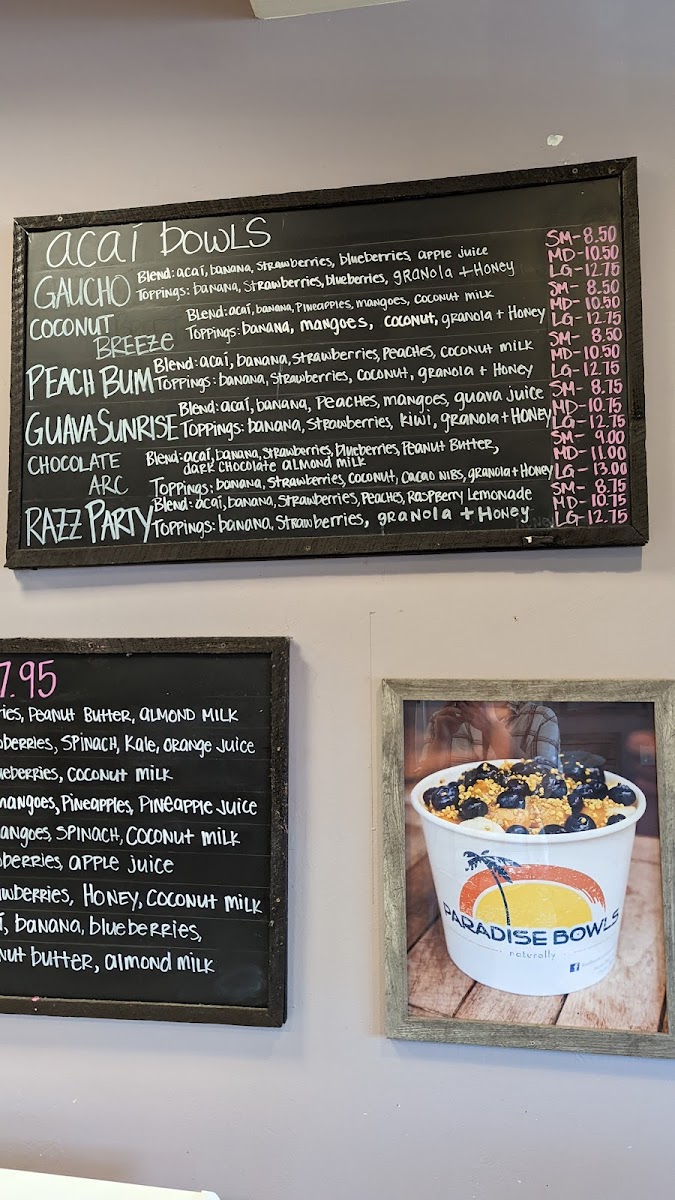 acaí bowls
GAUCHO Blend: acaí, banana, strawberries, blueberries, apple juice SM- 8.50
Toppings: banana, strawberries, blueberries, granola + Honey MD- 10.50
LG- 12.75
COCONUT BREEZE Blend: acaí, banana, Pineapples, mangoes, coconut milk SM- 8.50
Toppings: banana, mangoes, coconut, granola + Honey MD- 10.50
LG- 12.75
PEACH BUM Blend: acaí, banana, strawberries, peaches, coconut milk SM- 8.50
Toppings: banana, strawberries, coconut, granola + Honey MD- 10.50
LG- 12.75
GUAVA SUNRISE Blend: acaí, banana, peaches, mangoes, guava juice SM- 8.75
Toppings: banana, strawberries, kiwi, granola + Honey MD- 10.75
LG- 12.75
CHOCOLATE ARC Blend: acaí, banana, strawberries, blueberries, Peanut Butter, SM- 9.00
dark chocolate almond milk MD- 11.00
Toppings: banana, strawberries, coconut, cacao nibs, granola + Honey LG- 13.00
RAZZ PARTY Blend: acaí, banana, strawberries, peaches, raspberry Lemonade SM- 8.75
Toppings: banana, strawberries, granola + Honey MD- 10.75
LG- 12.75
7.95
ries, Peanut Butter, almond milk
berries, spinach, kale, orange juice
ueberries, coconut milk
mangoes, Pineapples, Pineapple juice
angoes, spinach, coconut milk
berries, apple juice
wberries, Honey, coconut milk
í, banana, blueberries,
nut butter, almond milk
PARADISE BOWLS
naturally